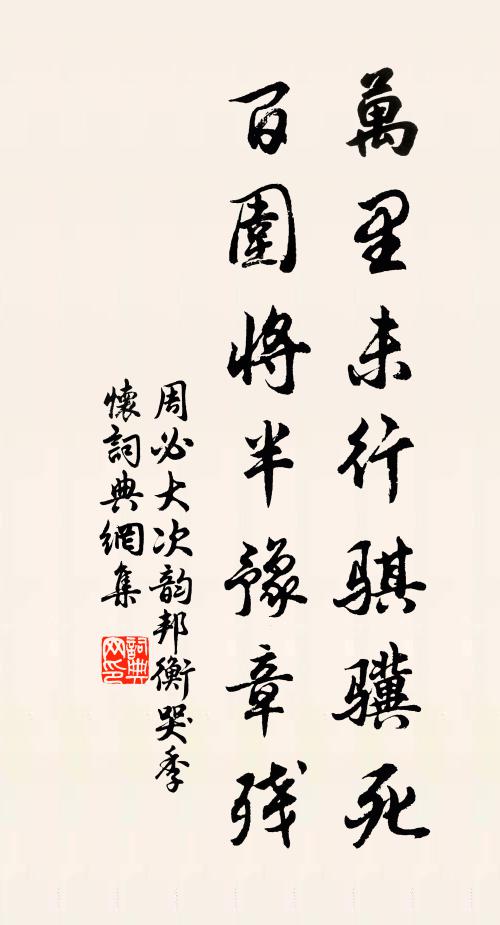 萬里未行骐骥死
百圍將半豫章残
周必大次韵邦衡哭季
懷詞典網集
詞典
网印